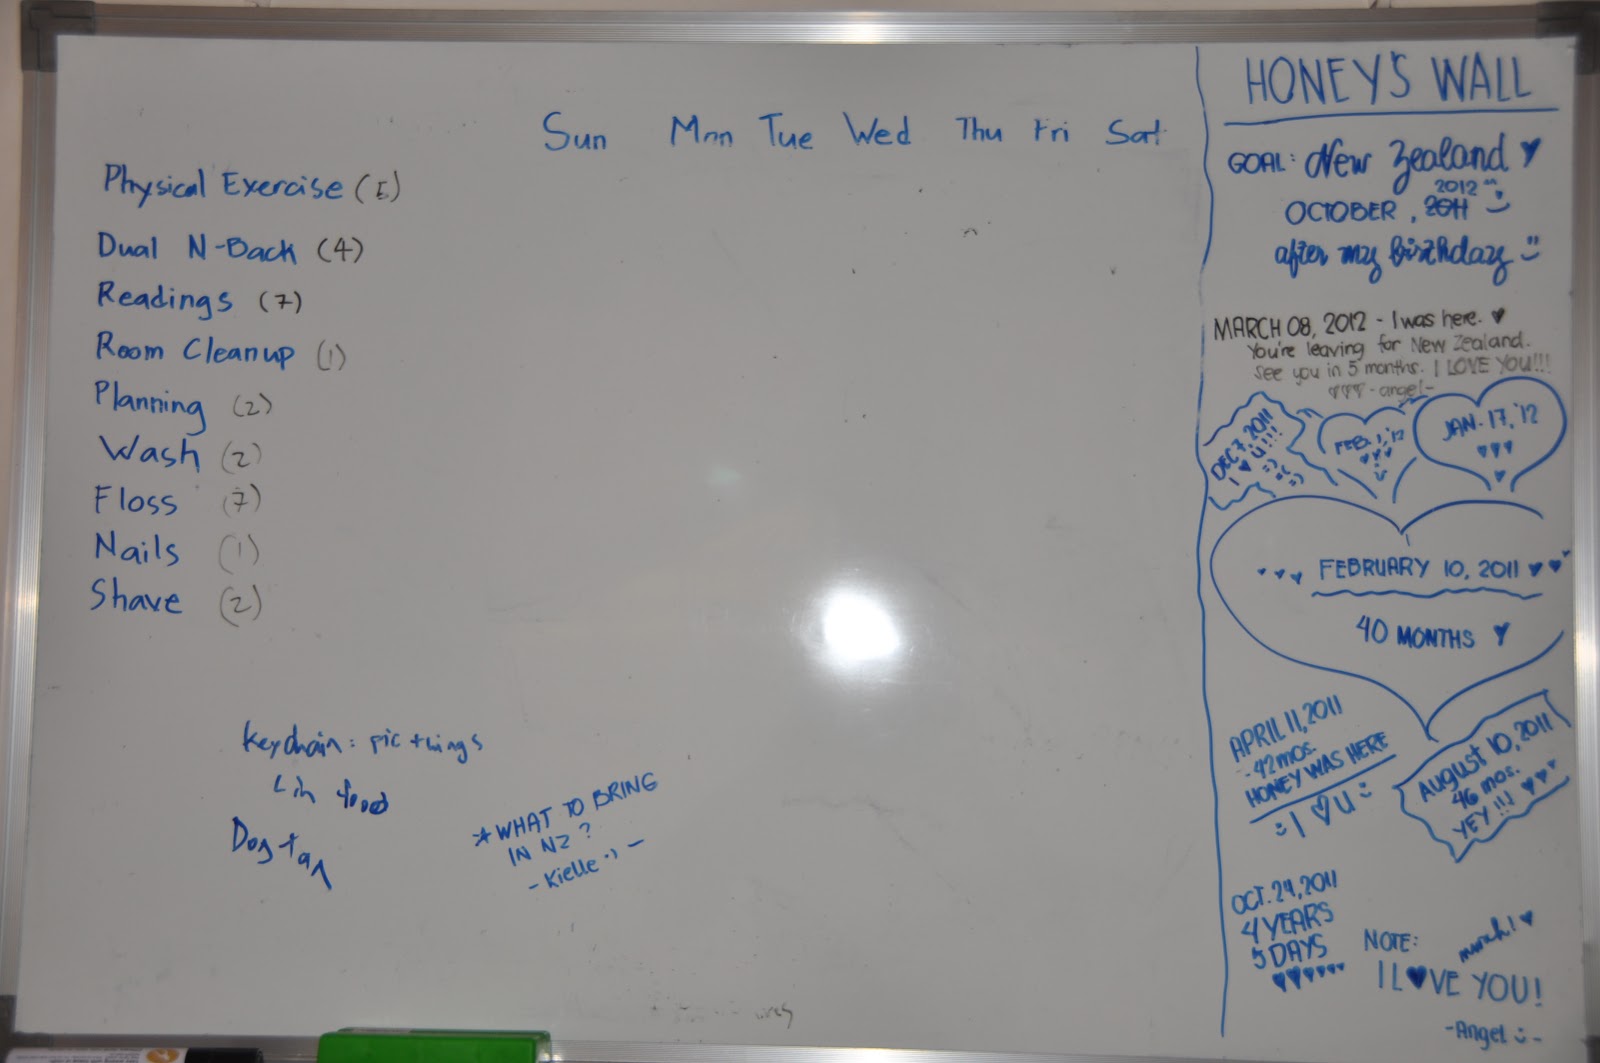 Sun Mon Tue Wed Thu Fri Sat
Physical Exercise (5)
Dual N-Back (4)
Readings (7)
Room Cleanup (1)
Planning (2)
Wash (2)
Floss (7)
Nails (1)
Shave (2)
Keychain: pic things
food
Dog tag
*WHAT TO BRING
IN NZ?
- Kielle :) -
HONEY'S WALL
GOAL: New Zealand ♥
2012
OCTOBER, 2011
after my birthday
MARCH 08, 2012 - I was here. ♥
You're leaving for New Zealand.
See you in 5 months. I LOVE YOU!!!
♥♥♥ -angel-
DEC 7, 2011
I ♥ U!!!
FEB. 1, '12
♥♥♥
JAN. 17, '12
♥♥♥
♥
♥♥♥ FEBRUARY 10, 2011 ♥♥♥
40 MONTHS ♥
APRIL 11, 2011
-42 mos.
HONEY WAS HERE
I ♥ U
AUGUST 10, 2011
46 mos.
YEY!!! ♥♥♥
OCT. 24, 2011
4 YEARS
5 DAYS
♥♥♥♥♥♥
NOTE: much! ♥
I L♥VE YOU!
-Angel :)-